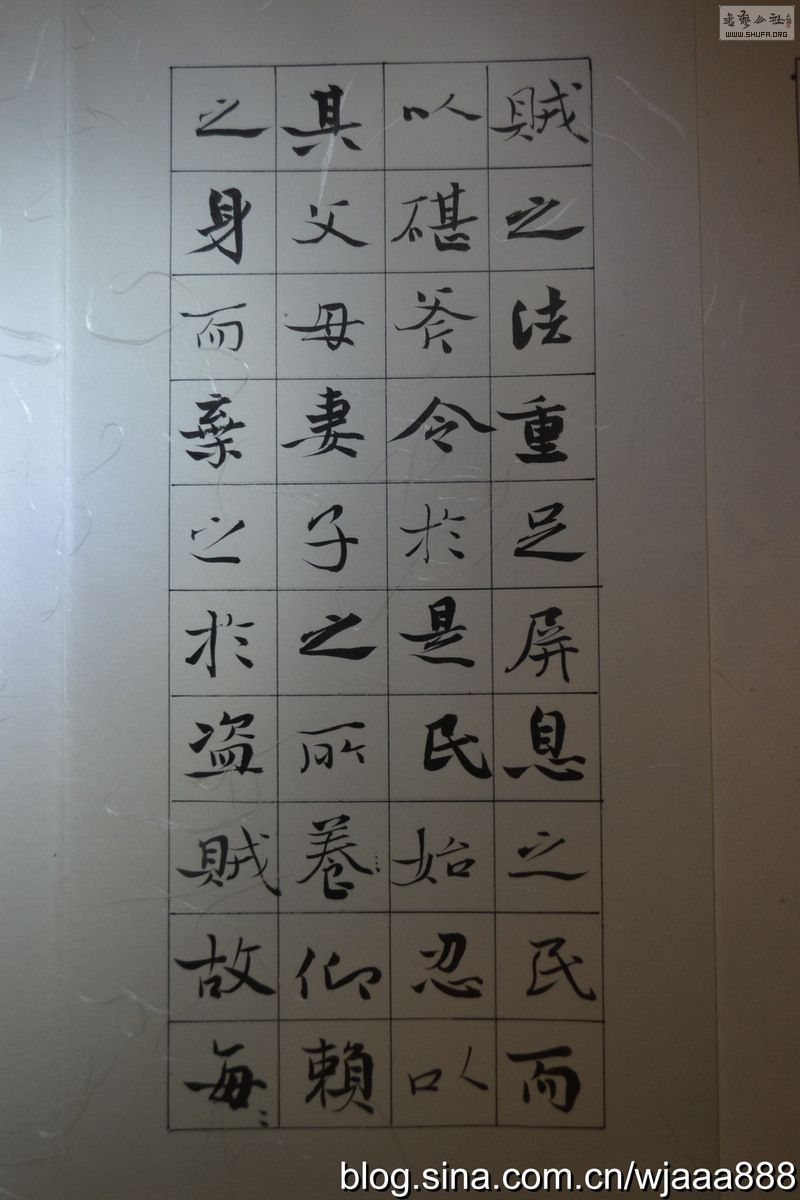 賊之法重足屏息之民而
以碪斧令於是民始忍以
其父母妻子之所養仰賴
之身而棄之於盗賊故每〻
書藝公社
WWW.SHUFA.ORG
blog.sina.com.cn/wjaaa888